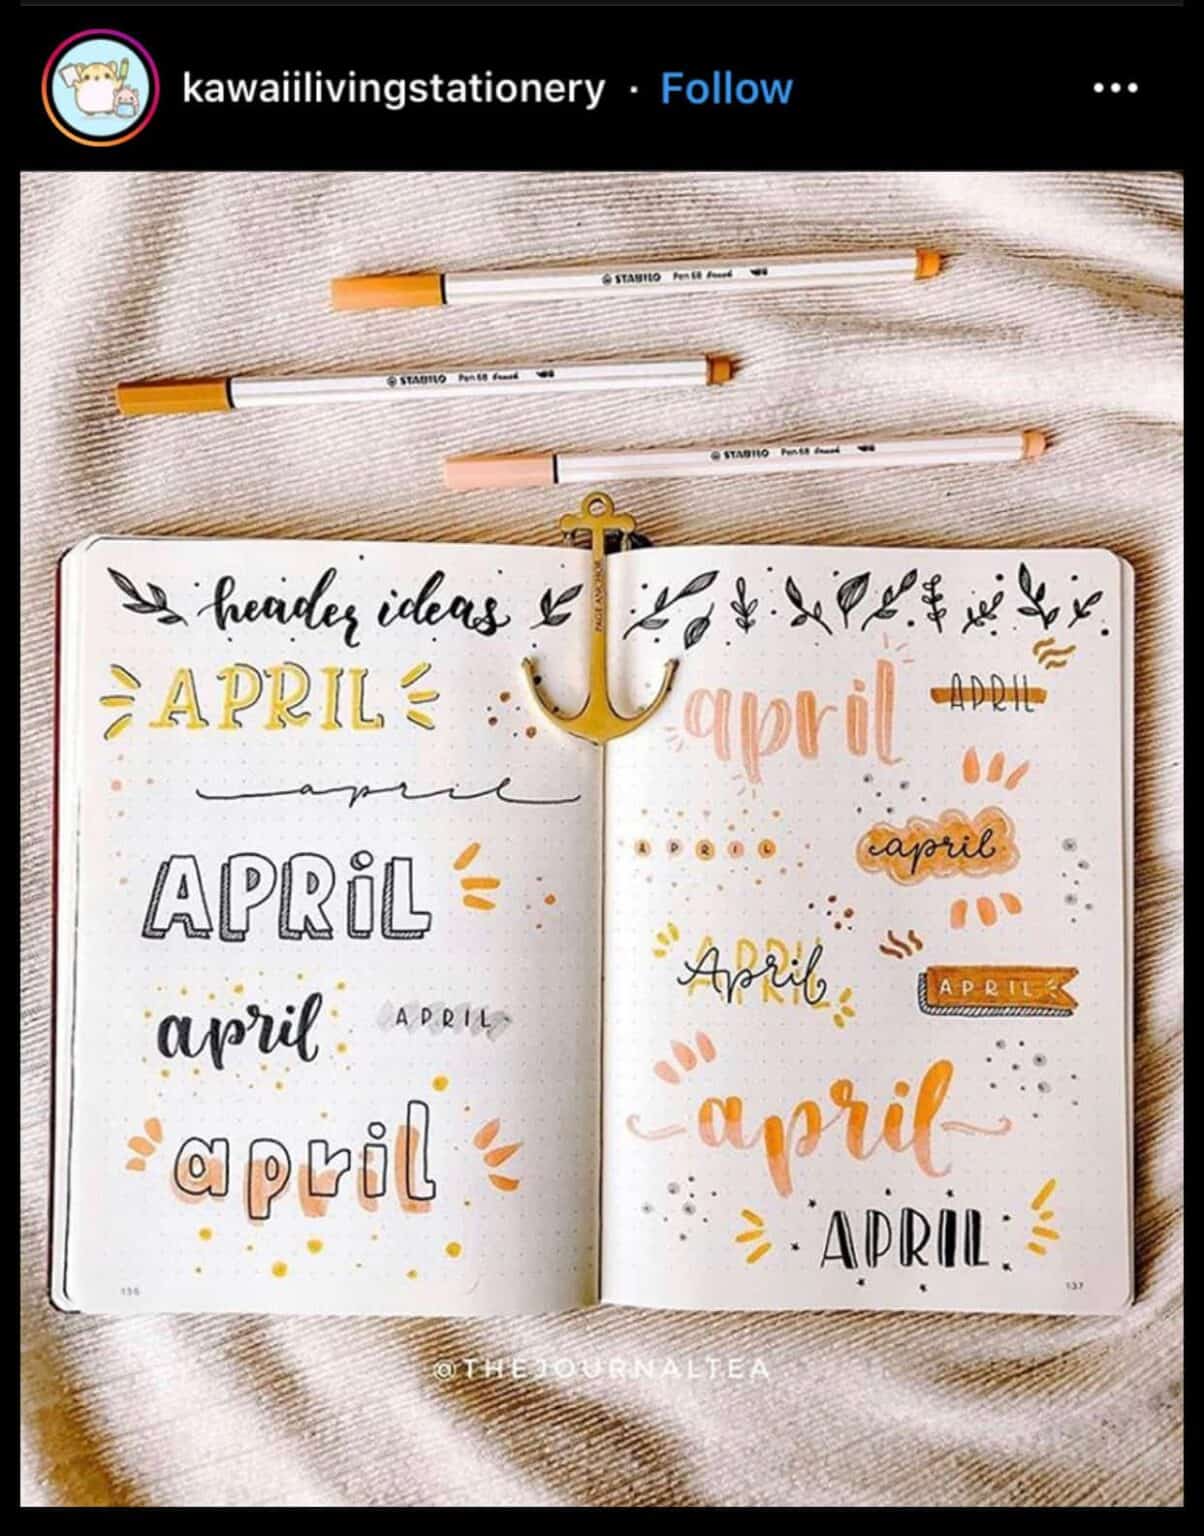 kawaiilivingstationery · Follow
STABILO Pen 68 brush
STABILO Pen 68 brush
STABILO Pen 68 brush
PAGE ANCHOR
header ideas
APRIL
april
APRiL
april
APRIL
april
136
april
APRIL
APRIL
april
APRIL
April
APRIL
april
APRIL
137
@THEJOURNALTEA